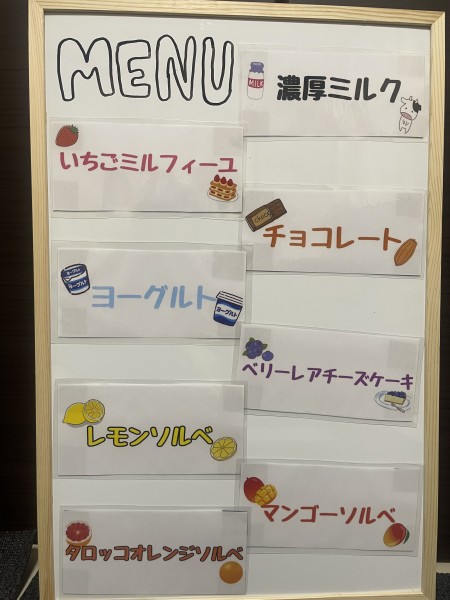 MENU
MILK
濃厚ミルク
いちごミルフィーユ
CHOCO
チョコレート
ヨーグルト
ヨーグルト
ヨーグルト
ヨーグルト
ベリーレアチーズケーキ
レモンソルベ
マンゴーソルベ
タロッコオレンジソルベ